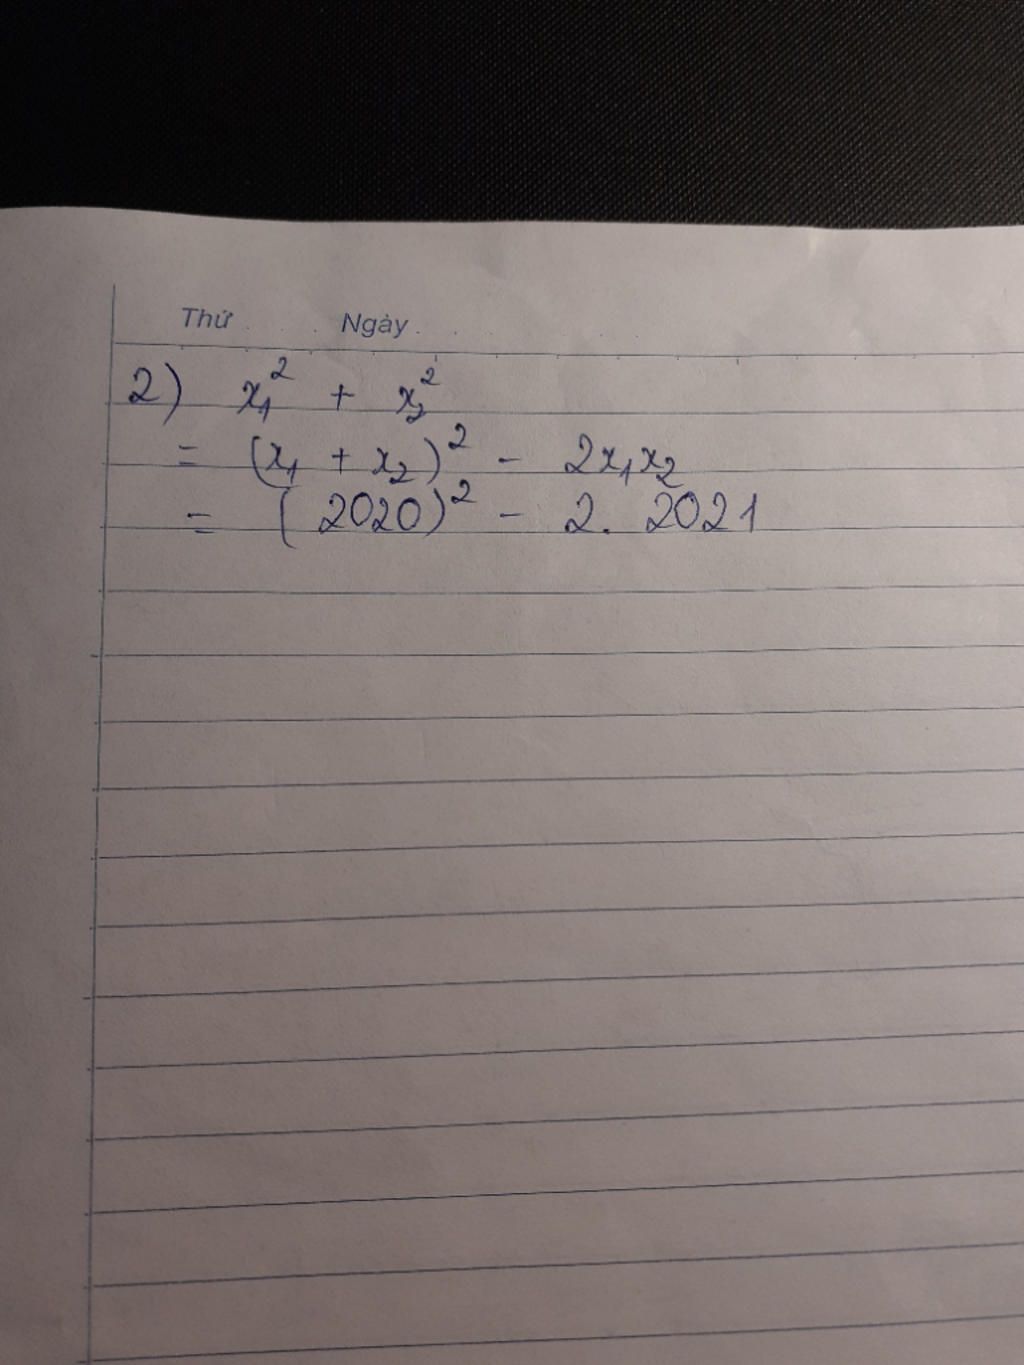 Thứ Ngày
2) x₁² + x₂²
= (x₁ + x₂)² - 2x₁x₂
= (2020)² - 2. 2021